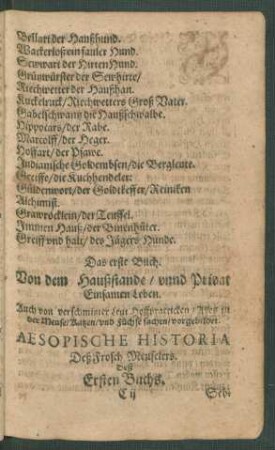 Bellart der Haußhund.
Wackerloß ein fauler Hund.
Sewwart der Hirten Hund.
Grünwürster der Sewhirte/
Riechwetter der Haußhan.
Kuckelruck/Riechwetters Groß Vater.
Gabelschwantz die Haußschwalbe.
Hippocars/der Rabe.
Marcolff/der Heger.
Hoffart/der Pfawe.
Indianische Goldemhsen/die Bergleute.
Greiffe/die Kuchhendeler.
Güldenwort/der Goldkeffer/Reiniken
Alchimist.
Grawröcklein/der Teuffel.
Immen Hauß/der Bienhüter.
Greiff vnd halt/des Jägers Hunde.
Das erste Buch.
Von dem Haußstande/vnnd Privat
Einsamen Leben.
Auch von verschmitzter
der Meuse/Katzen/vnd Füchse sachen/vorgebildet
AESOPISCHE HISTORIA
Deß Frosch Meuselers.
Deß
Ersten Buchs.
C ij